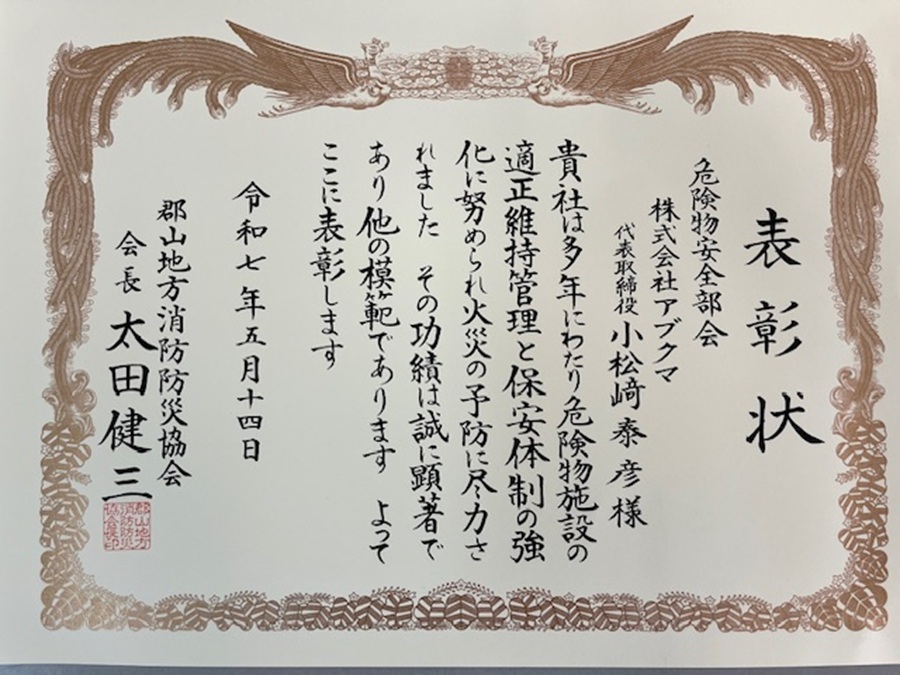 表彰状
危険物安全部会
株式会社アブクマ
代表取締役 小松﨑泰彦様
貴社は多年にわたり危険物施設の
適正維持管理と保安体制の強
化に努められ火災の予防に尽力さ
れました その功績は誠に顕著で
あり他の模範であります よって
ここに表彰します
令和七年五月十四日
郡山地方消防防災協会
会長 太田健三
郡山地方
消防防災
協会長印